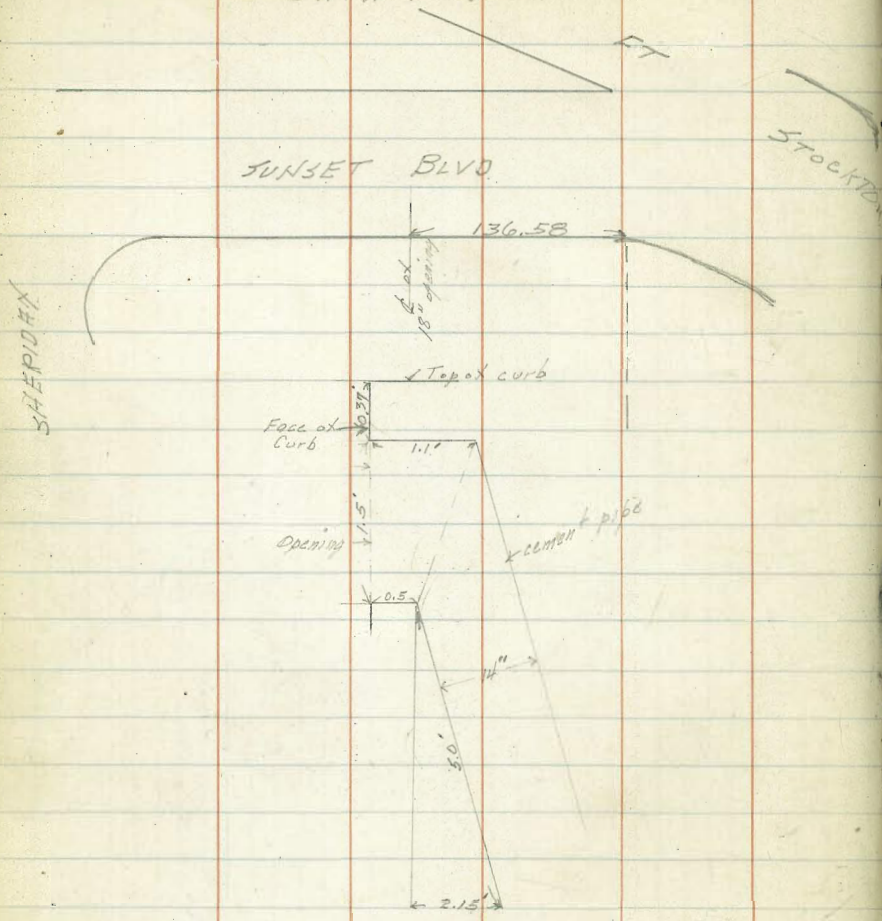 FT
STOCKTO
SUNSET BLVD
136.58
℄ of
18" opening
SHERIDAN
Top of curb
0.37'
Face of
Curb
1.1'
1.5'
Opening
cement pipe
0.5
14"
5.0'
2.15'